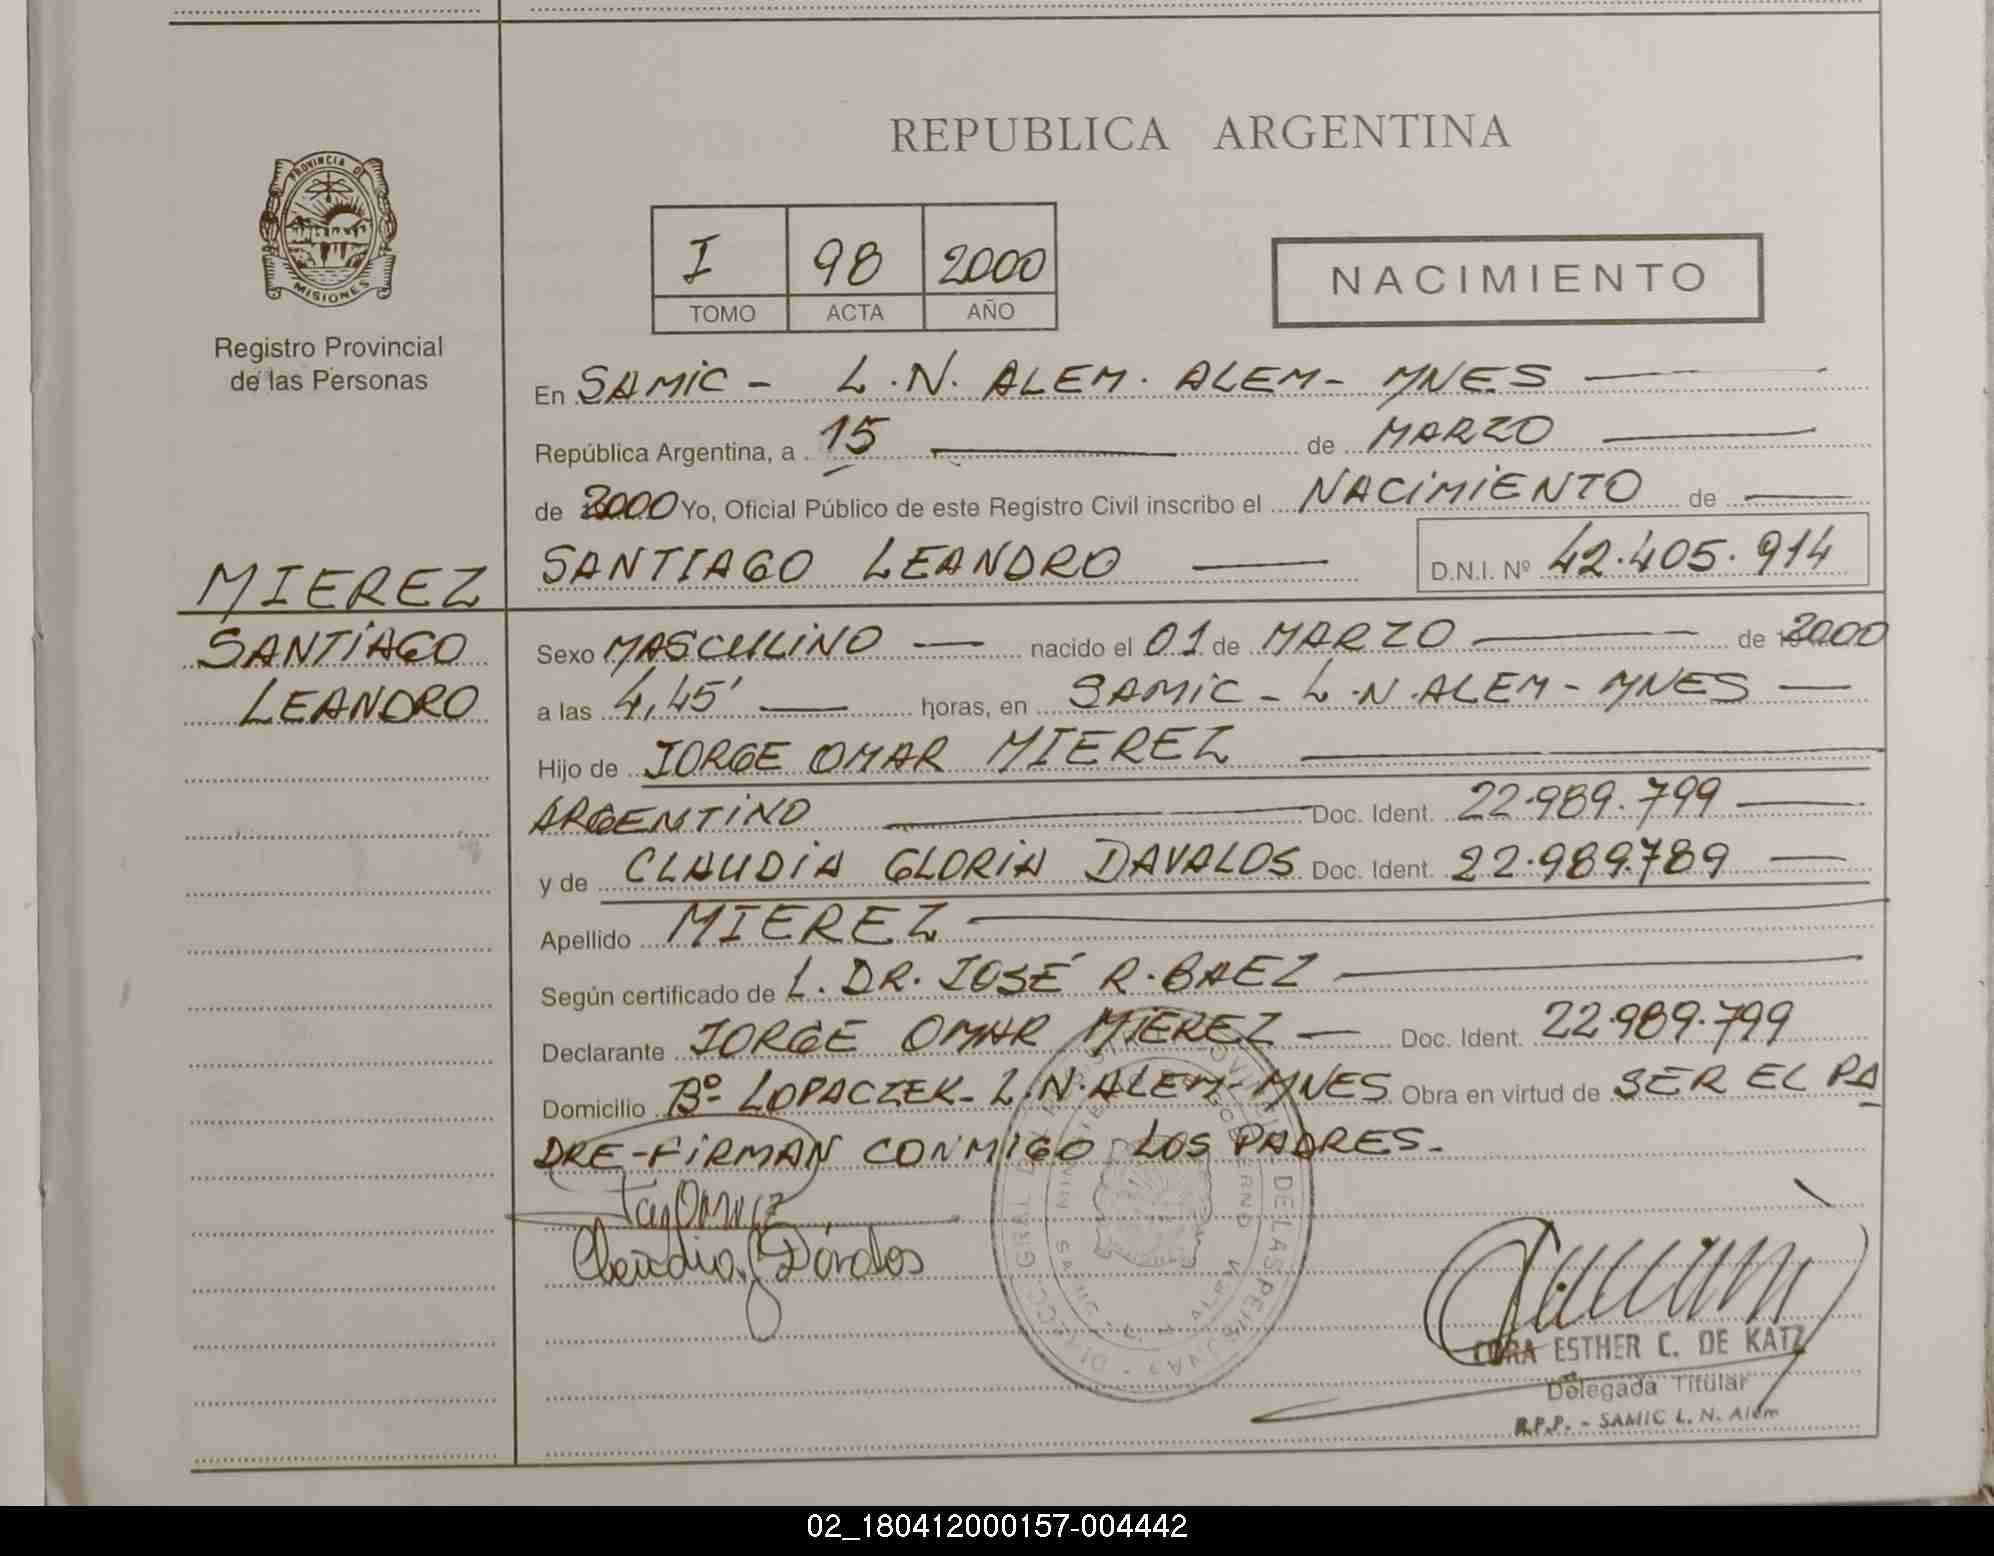 REPUBLICA ARGENTINA
PROVINCIA DE MISIONES
Registro Provincial
de las Personas
I 98 2000
TOMO ACTA AÑO
NACIMIENTO
En SAMIC - L.N. ALEM. ALEM- MNES
República Argentina, a 15 de MARZO
de 2000 Yo, Oficial Público de este Registro Civil inscribo el NACIMIENTO de
SANTIAGO LEANDRO D.N.I. Nº 42.405.914
MIEREZ
SANTIAGO
LEANDRO
Sexo MASCULINO nacido el 01 de MARZO de 2000
a las 4,45' horas, en SAMIC - L.N.ALEM - MNES
Hijo de JORGE OMAR MIEREZ
ARGENTINO Doc. Ident. 22.989.799
y de CLAUDIA GLORIA DAVALOS Doc. Ident. 22.989.789
Apellido MIEREZ
Según certificado de L. DR. JOSÉ R. BAEZ
Declarante JORGE OMAR MIEREZ Doc. Ident. 22.989.799
Domicilio Bº LOPACZEK- L.N.ALEM- MNES Obra en virtud de SER EL PA
DRE-FIRMAN CONMIGO LOS PADRES.
Claudia G Dávalos
ESTHER C. DE KATZ
Delegada Titular
R.P.P. - SAMIC L. N. Alem
02_180412000157-004442